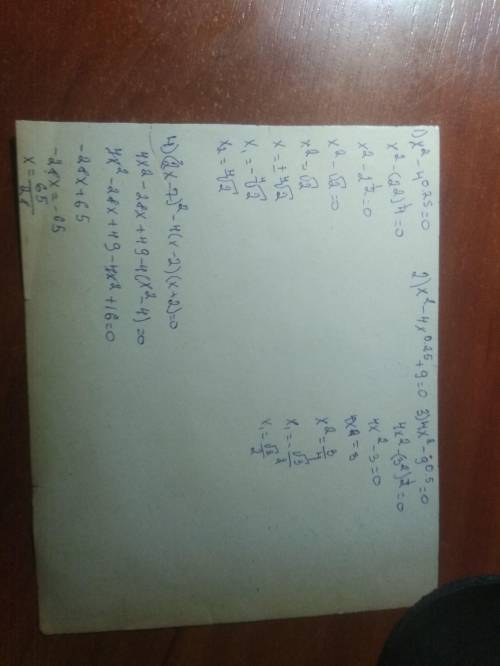 1) x² - 4^0.25 = 0
x² - (2²)^¼ = 0
x² - 2^½ = 0
x² - √2 = 0
x² = √2
x = ± ⁴√2
x₁ = -⁴√2
x₂ = ⁴√2
2) x² - 4x^0.25 + 9 = 0
3) 4x² - 9^0.5 = 0
4x² - (3²)^½ = 0
4x² - 3 = 0
4x² = 3
x² = 3/4
x₁ = -√3/2
x₁ = √3/2
4) (2x-7)² - 4(x-2)(x+2) = 0
4x² - 28x + 49 - 4(x² - 4) = 0
4x² - 28x + 49 - 4x² + 16 = 0
-28x + 65
-28x = -65
x = 65/28